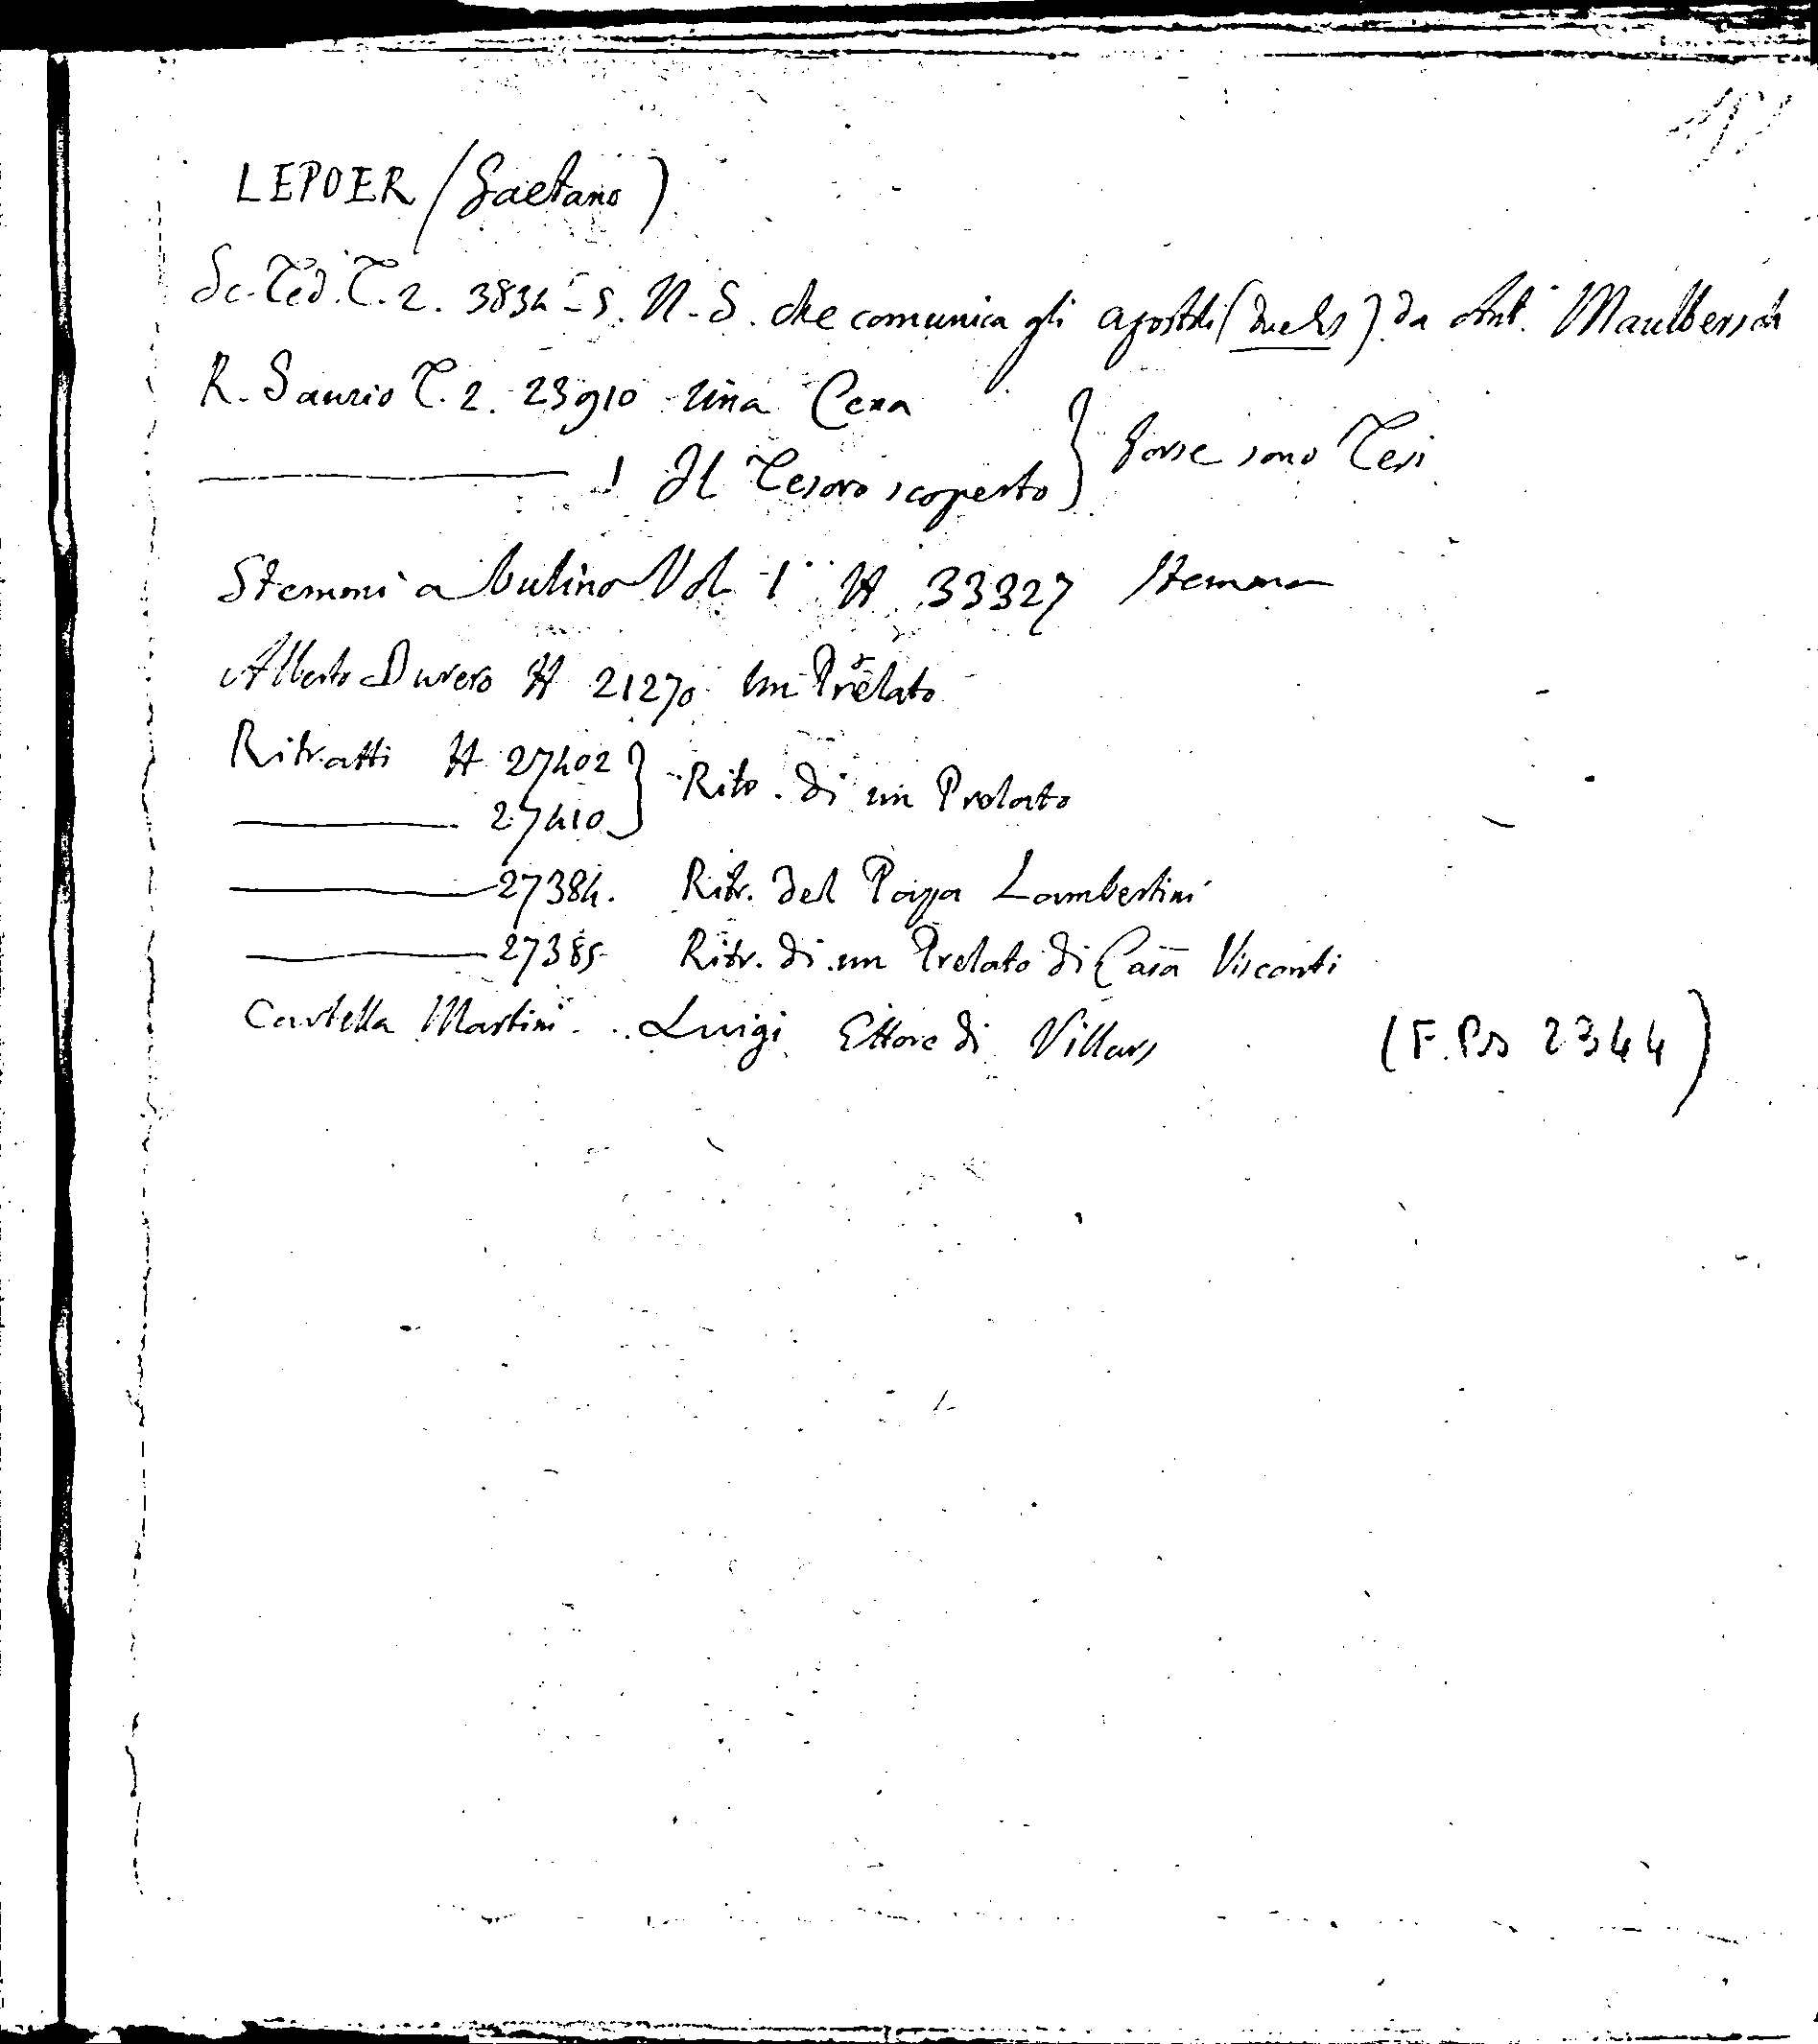 LEPOER (Gaetano)
Sc. Ted. T. 2. 3834-5. N. S. che comunica gli apostoli () da Ant. Maulbersch
R. Sanzio T. 2. 23910 Una Cena
1 Il Tesoro scoperto } forse sono Tesi
Stemmi a bulino Vol. 1 H 33327 Stemma
Alberto Durero H 21270 Un Prelato
Ritratti H 27402 } Ritr. di un Prelato
27410
27384. Ritr. del Papa Lambertini
27385 Ritr. di un Prelato di Casa Visconti
Cartella Martini . . Luigi Ettore di Villars (F. Ps 2344)